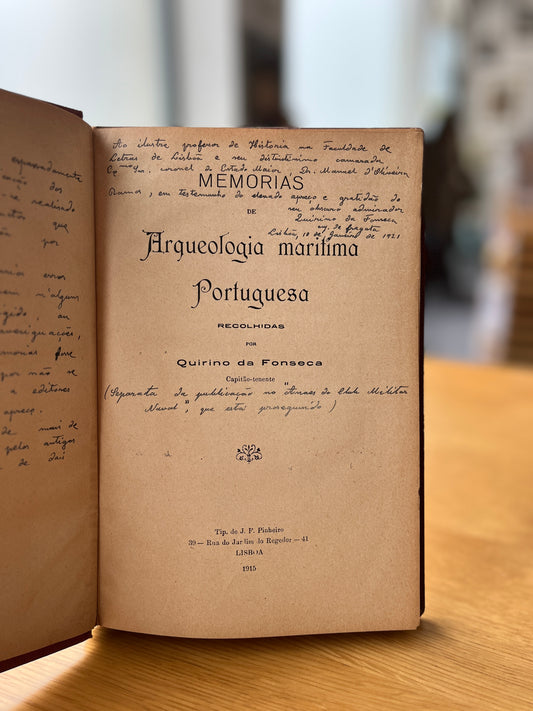 esparsadamente
cação dos
se realisado
ntos que
por
erior erro
em n'algum
gido, ou
averiguações,
monas fosse
por não se
a editores
apreço.
de mais de
pelos antigos
e de tais
Ao ilustre professor de Historia na Faculdade de
Letras de Lisboa e seu distintissimo camarada
Exmo Sr. coronel de Estado Maior Dr. Manuel d'Oliveira
Ramos, em testemunho do elevado apreço e gratidão do
seu obscuro admirador
Quirino da Fonseca
de fragata
Lisboa, 10 de Janeiro de 1921
MEMORIAS
DE
Arqueologia maritima
Portuguesa
RECOLHIDAS
POR
Quirino da Fonseca
Capitão-tenente
(Separata da publicação no "Anaes do Club Militar
Naval", que está proseguindo)
Tip. de J. F. Pinheiro
39 — Rua do Jardim do Regedor — 41
LISBOA
1915